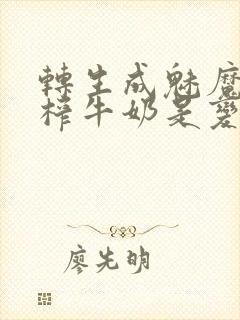 轉生成魅魔
榨牛奶是變
廖先明